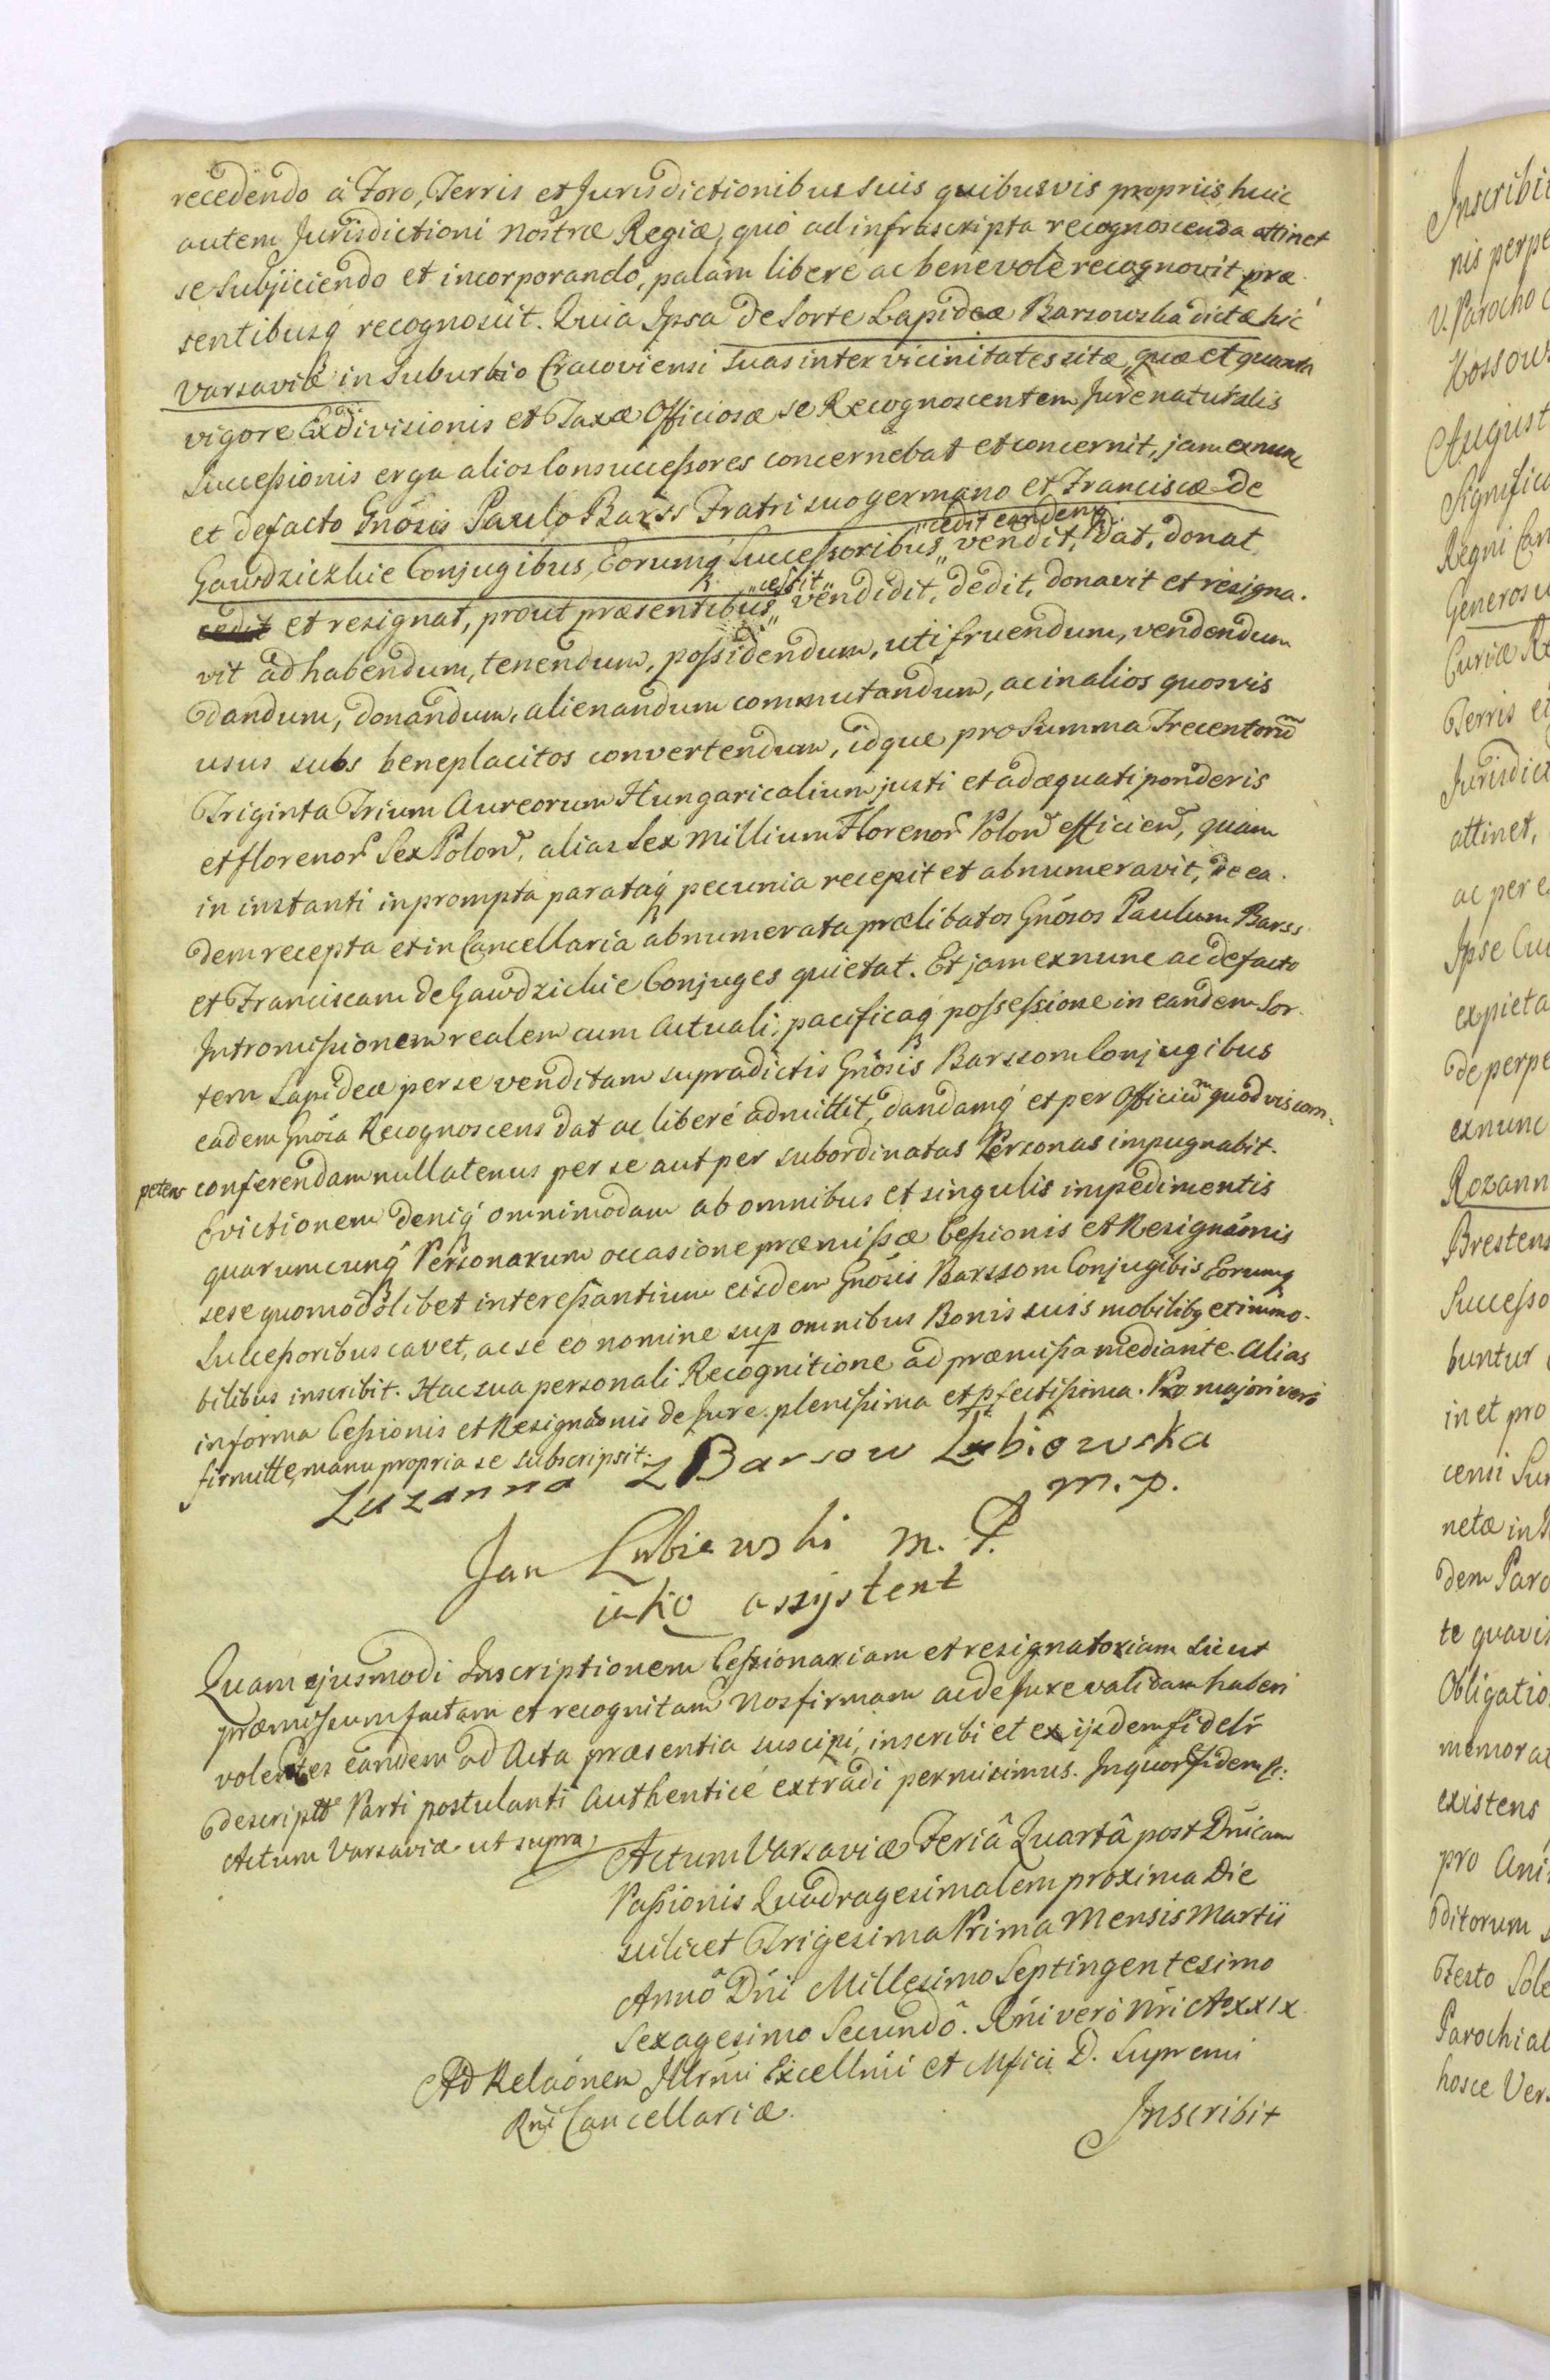 recedendo à Foro, Terris et Jurisdictionibus suis quibusvis propriis, huic
autem Jurisdictioni nostræ Regiæ, quò ad infrascripta recognoscenda attinet
se subjiciendo et incorporando, palàm liberè ac benevolè recognovit præ
sentibusq recognoscit. Quia Ipsa de Sorte Lapideæ Barsowska dictæ hìc
Varsaviæ in Suburbio Cracoviensi suas inter vicinitates sitæ, quæ et quanta
vigore Exdivisionis et Taxæ Officiosæ se Recognoscentem Jure naturalis
Successionis erga alios Consuccessores concernebat et concernit, jam exnunc
et defacto Gnósis Paulo Barss Fratri suo germano et Franciscæ de
Gawdziczkie Conjugibus, Eorumq Successoribus „cedit eandemq vendit, dat, donat
cedit et resignat, prout præsentibus „cessit„ vendidit, dedit, donavit et resigna.
vit ad habendum, tenendum, possidendum, utifruendum, vendendum
dandum, donandum, alienandum commutandum, ac in alios quosvis
usus suos beneplacitos convertendum, idque pro Summa Trecentorũ
Triginta Trium Aureorum Hungaricalium justi et adæquati ponderis
et florenor Sex Polon, alias Sex Millium Florenor Polon efficien, quam
in instanti in prompta parataq pecunia recepit et abnumeravit, de ea.
dem recepta et in Cancellaria abnumerata prælibatos Gnósos Paulum Barss
et Franciscam de Gawdzickie Conjuges quietat. Et jam exnunc ac defacto
Intromissionem realem cum actuali, pacificaq possessione in eandem Sor.
tem Lapideæ per se venditam supradictis Gnósis Barssom Conjugibus
eadem Gnósa Recognoscens dat ac liberè admittit, dandamq et per Officiũ quodvis com.
petens conferendam nullatenus per se aut per subordinatas Personas impugnabit.
Evictionem deniq omnimodam ab omnibus et singulis impedimentis
quarumcunq Personarum occasione præmissæ Cessionis et Resignáonis
sese quomodolibet interessantium eisdem Gnósis Barssom Conjugibis Eorumq
Successoribus cavet, ac se eo nomine sup omnibus Bonis suis mobilibq et immo.
bilibus inscribit. Hac sua personali Recognitione ad præmissa mediante. Alias
in forma Cessionis et Resignáonis de Jure plenissima et pfectissima. Pro majori verò
firmitte, manu propria se subscripsit.
Zuzanna Z Barsow Lubiowska
m. p.
Jan Lubiewski m. P.
iako assystent
Quam ejusmodi Inscriptionem Cessionariam et resignatoriam sicut
præmissum factam et recognitam Nos firmam ac de Jure validam haberi
volentes eandem ad Acta præsentia suscipi, inscribi et ex ijsdem fidelr
descriptã Parti postulanti Authenticè extradi permisimus. In quor fidem &:
Actum Varsaviæ ut supra
Actum Varsaviæ Feriâ Quartâ post Dnicam
Passionis Quadragesimalem proxima Die
scilicet Trigesima Prima Mensis Martii
Annô Dni Millesimo Septingentesimo
Sexagesimo Secundô. Rni verò Nri Ao XXIX
Ad Relaónem Illrmi Excellmi et Mfici D. Supremi
Rni Cancellariæ.
Inscribit